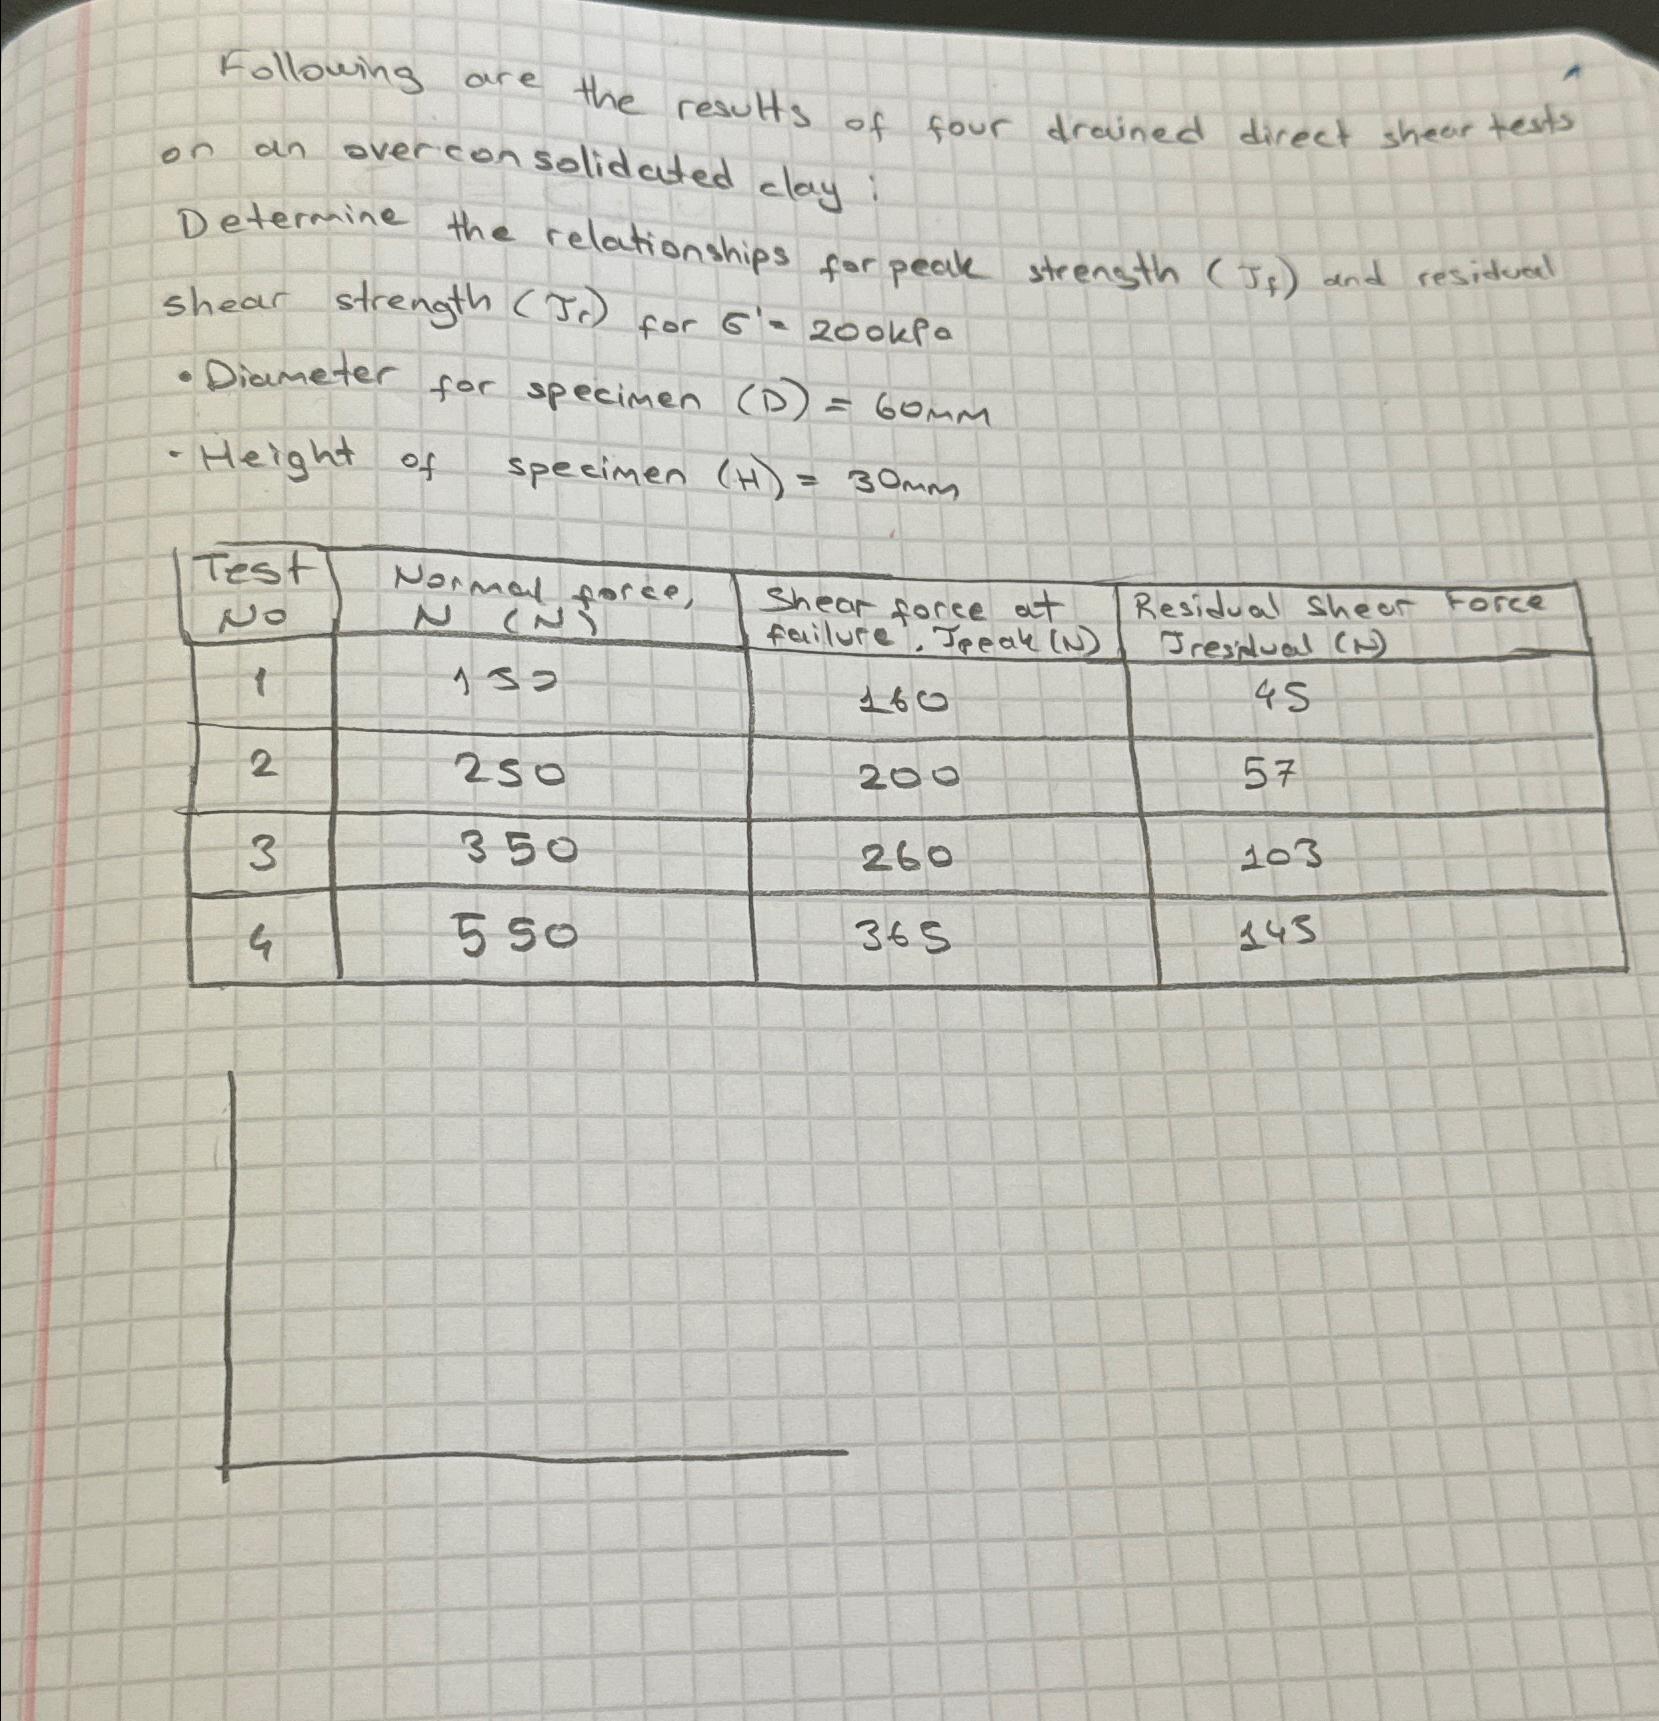 Following are the results of four drained direct shear tests
on an overconsolidated clay:
Determine the relationships for peak strength (τf) and residual
shear strength (τr) for σ' = 200kPa
• Diameter for specimen (D) = 60mm
• Height of specimen (H) = 30mm
Test No Normal force, N (N) Shear force at failure, Tpeak (N) Residual Shear Force Tresidual (N)
1 150 160 45
2 250 200 57
3 350 260 103
4 550 365 145